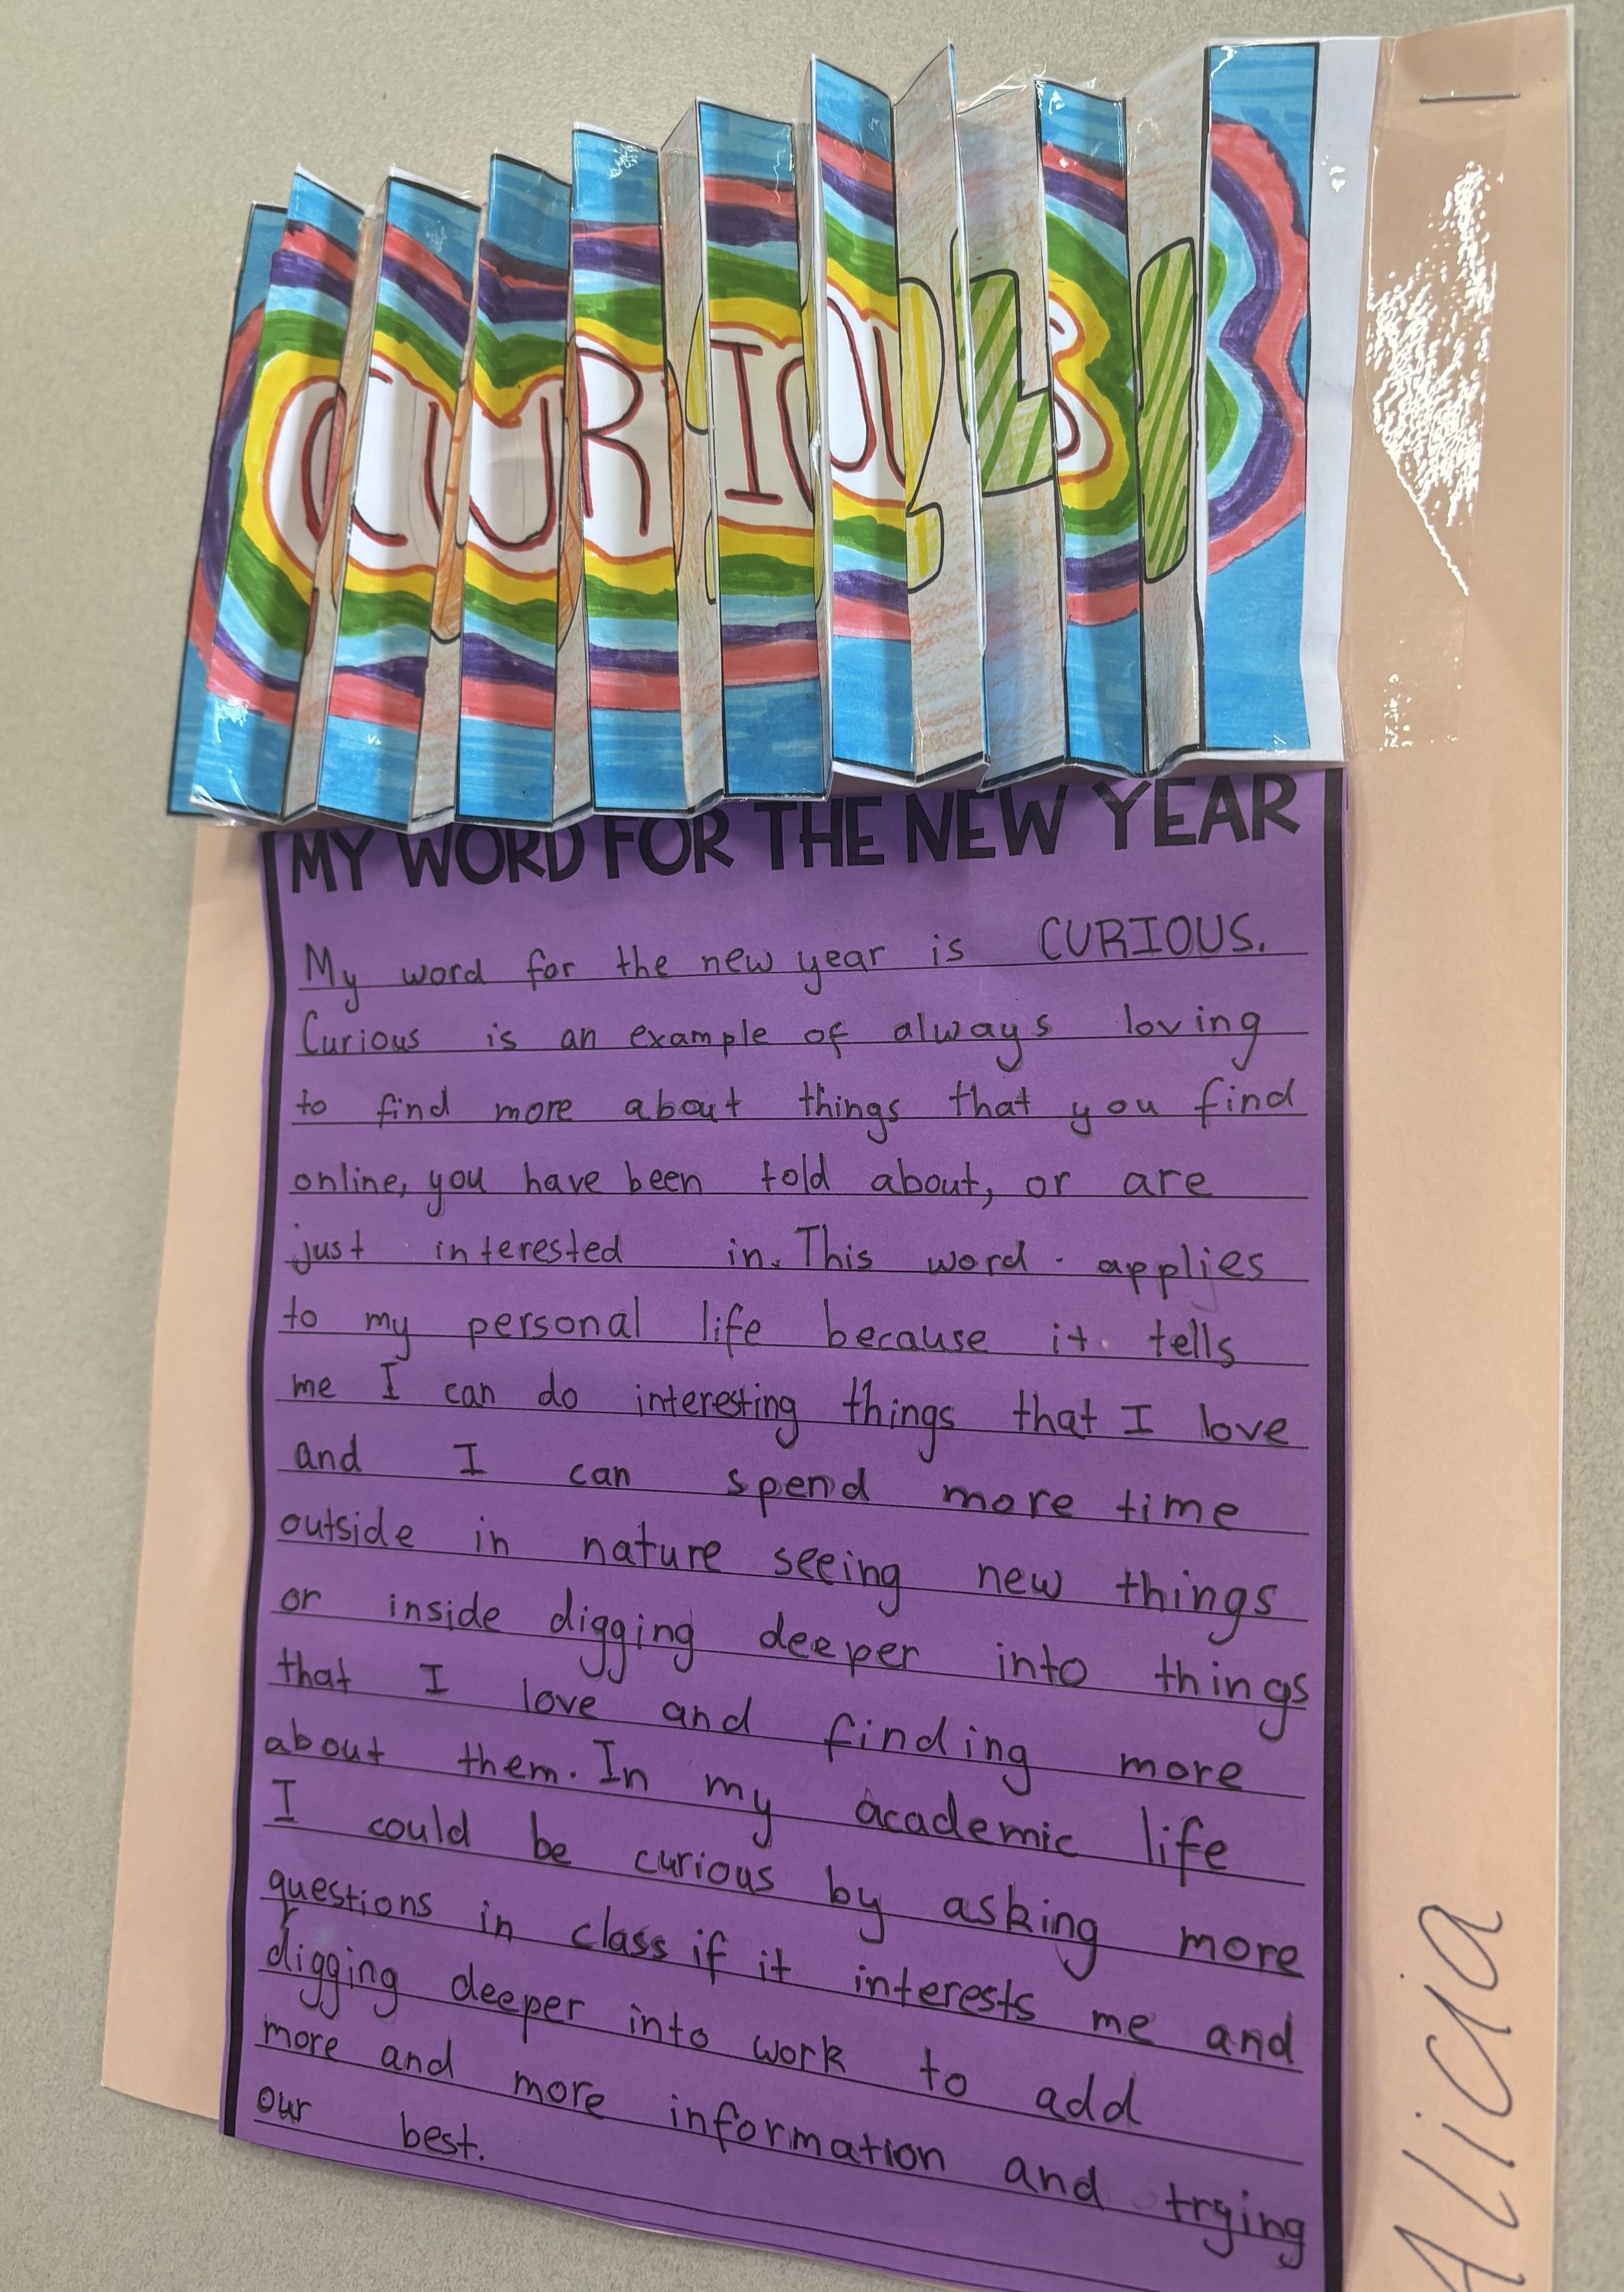 CURIOUS
MY WORD FOR THE NEW YEAR
My word for the new year is CURIOUS.
Curious is an example of always loving
to find more about things that you find
online, you have been told about, or are
just interested in. This word applies
to my personal life because it tells
me I can do interesting things that I love
and I can spend more time
outside in nature seeing new things
or inside digging deeper into things
that I love and finding more
about them. In my academic life
I could be curious by asking more
questions in class if it interests me and
digging deeper into work to add
more and more information and trying
our best.
Alicia